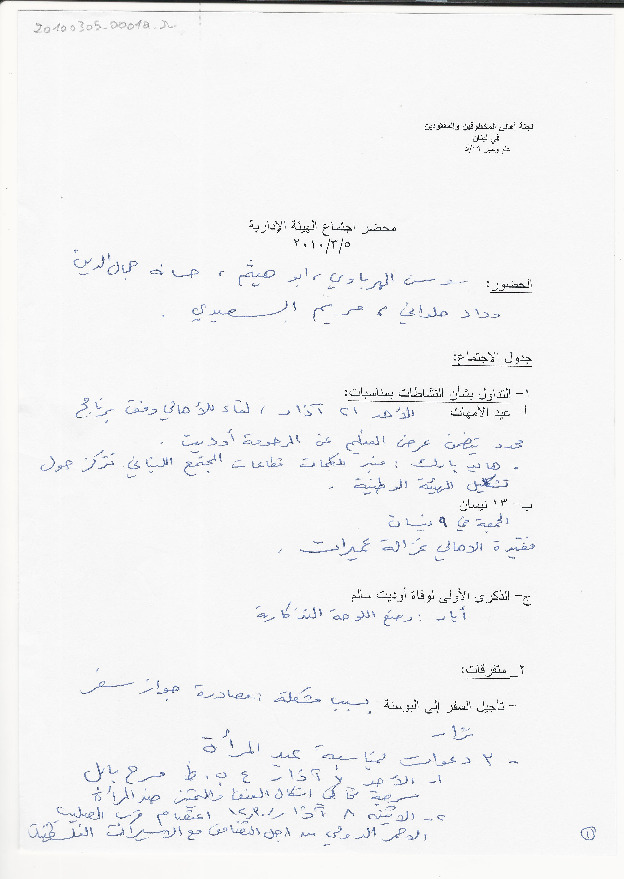 20100305-0001a-D
لجنة أهالي المخطوفين والمفقودين
في لبنان
محضر اجتماع الهيئة الإدارية
٢٠١٠/٣/٥
الحضور: سن المهرباوي، ابو هيثم، حسانه جمال الدين
وداد حلواني، مريم السعيدي.
جدول الاجتماع:
١- التداول بشأن النشاطات بمناسبات:
أ عيد الأمهات الأحد ٢١ آذار، لقاء للأهالي وفق برنامج
محدد يتضمن عرض الفيلم عن المرحومة أوديت.
- هايد بارك: منبر لكلمات قطاعات المجتمع اللبناني تتركز حول
تشكيل الهيئة الوطنية.
ب- ١٣ نيسان
الجمعة في ٩ نيسان
الاهالي غزالة
ج- الذكرى الأولى لوفاة أوديت سالم
أيار: وضع اللوحة التذكارية
٢_ متفرقات:
- تأجيل السفر إلى البوسنة بسبب مشكلة: مصادرة جواز سفر
نزار
- ٣ دعوات لمناسبة عيد المرأة
١- الأحد ٧ آذار ع ٥ ب.ظ مسرح بابل
مسرحية اشكال العنف والتمييز ضد المرأة
٢- الاثنين ٨ آذار اعتصام قرب الصليب
الاحمر الدولي من اجل التضامن مع الاسيرات الفلسطينية
١